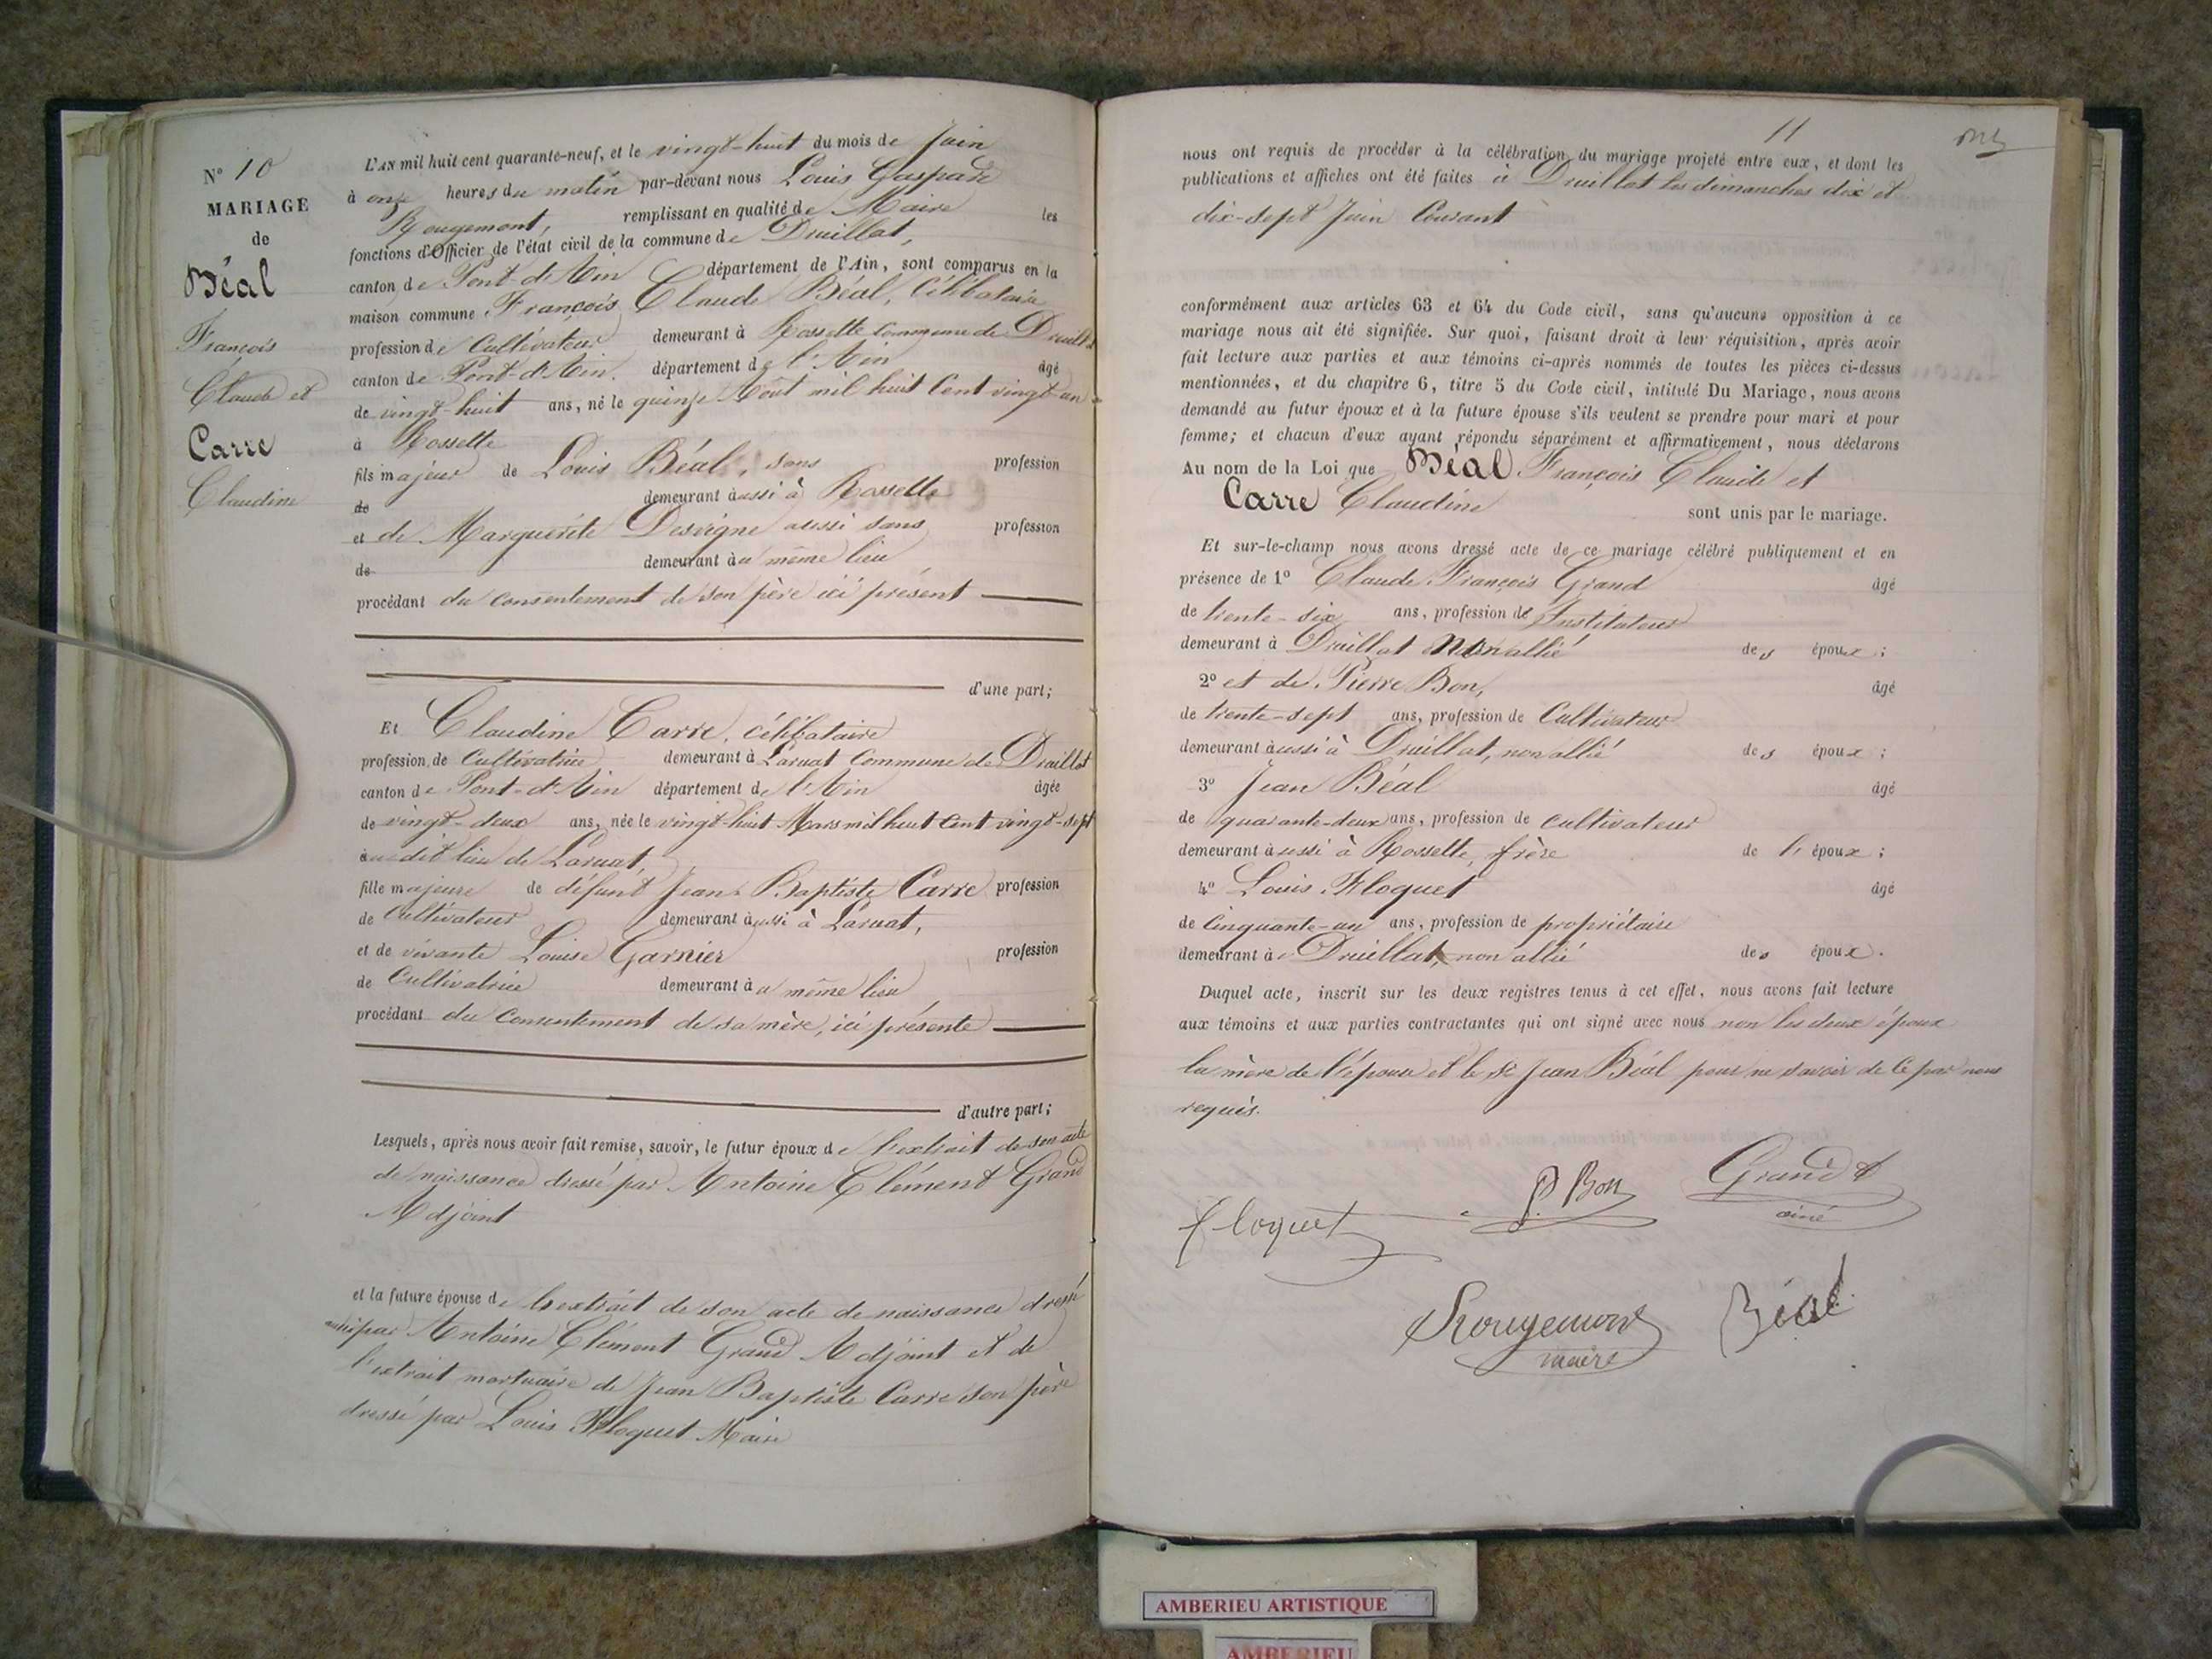 N° 10
MARIAGE
de
Béal
François
Claude et
Carre
Claudine
L'AN mil huit cent quarante-neuf, et le vingt-huit du mois de Juin
à onze heures du matin par-devant nous Louis Gaspard
Rougemont, remplissant en qualité de Maire les
fonctions d'Officier de l'état civil de la commune de Druillat,
canton de Pont-d'Ain département de l'Ain, sont comparus en la
maison commune François Claude Béal, célibataire
profession de Cultivateur demeurant à Rossette Commune de Druillat
canton de Pont-d'Ain. département de l'Ain âgé
de vingt-huit ans, né le quinze Aout mil huit Cent vingt-un
à Rossette
fils majeur de Louis Béal, sans profession
de demeurant aussi à Rossette
et de Marguerite Desvigne aussi sans profession
de demeurant au même lieu
procédant du consentement de son père ici présent
d'une part;
Et Claudine Carre, célibataire
profession de Cultivatrice demeurant à Laruat Commune de Druillat
canton de Pont-d'Ain département de l'Ain âgée
de vingt-deux ans, née le vingt-huit Mars mil huit Cent vingt-sept
audit lieu de Laruat,
fille majeure de défunt Jean Baptiste Carre profession
de Cultivateur demeurant aussi à Laruat,
et de vivante Louise Garnier profession
de Cultivatrice demeurant au même lieu
procédant du Consentement de sa mère, ici présente
d'autre part;
Lesquels, après nous avoir fait remise, savoir, le futur époux de l'extrait de son acte
de naissance dressé par Antoine Clément Grand
Adjoint
et la future épouse de l'extrait de son acte de naissance dressé
aussi par Antoine Clément Grand Adjoint et de
l'extrait mortuaire de Jean Baptiste Carre son père
dressé par Louis Floquet Maire
11
nous ont requis de procéder à la célébration du mariage projeté entre eux, et dont les
publications et affiches ont été faites à Druillat les dimanches dix et
dix-sept Juin Courant
conformément aux articles 63 et 64 du Code civil, sans qu'aucune opposition à ce
mariage nous ait été signifiée. Sur quoi, faisant droit à leur réquisition, après avoir
fait lecture aux parties et aux témoins ci-après nommés de toutes les pièces ci-dessus
mentionnées, et du chapitre 6, titre 5 du Code civil, intitulé Du Mariage, nous avons
demandé au futur époux et à la future épouse s'ils veulent se prendre pour mari et pour
femme; et chacun d'eux ayant répondu séparément et affirmativement, nous déclarons
Au nom de la Loi que Béal François Claude et
Carre Claudine sont unis par le mariage.
Et sur-le-champ nous avons dressé acte de ce mariage célébré publiquement et en
présence de 1° Claude François Grand âgé
de trente-six ans, profession d'Instituteur
demeurant à Druillat non allié des époux;
2° et de Pierre Bon, âgé
de trente-sept ans, profession de Cultivateur
demeurant aussi à Druillat, non allié des époux;
3° Jean Béal âgé
de quarante-deux ans, profession de cultivateur
demeurant aussi à Rossette, frère de l' époux;
4° Louis Floquet âgé
de Cinquante-un ans, profession de propriétaire
demeurant à Druillat, non allié des époux.
Duquel acte, inscrit sur les deux registres tenus à cet effet, nous avons fait lecture
aux témoins et aux parties contractantes qui ont signé avec nous non les deux époux
la mère de l'épouse et le sr Jean Béal pour ne savoir de ce par nous
requis.
Floquet P. Bon Grand
ainé
Rougemont Béal
maire
AMBERIEU ARTISTIQUE
AMBERIEU